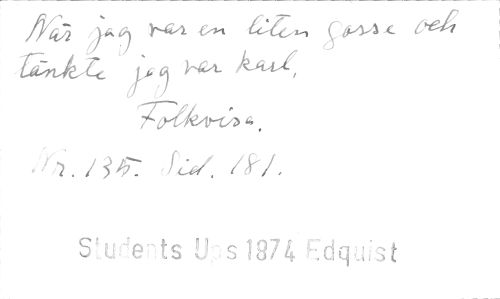 När jag var en liten gosse och
tänkte jag var karl,
Folkvisa.
Nr. 135. Sid. 181.
Students Ups 1874 Edquist